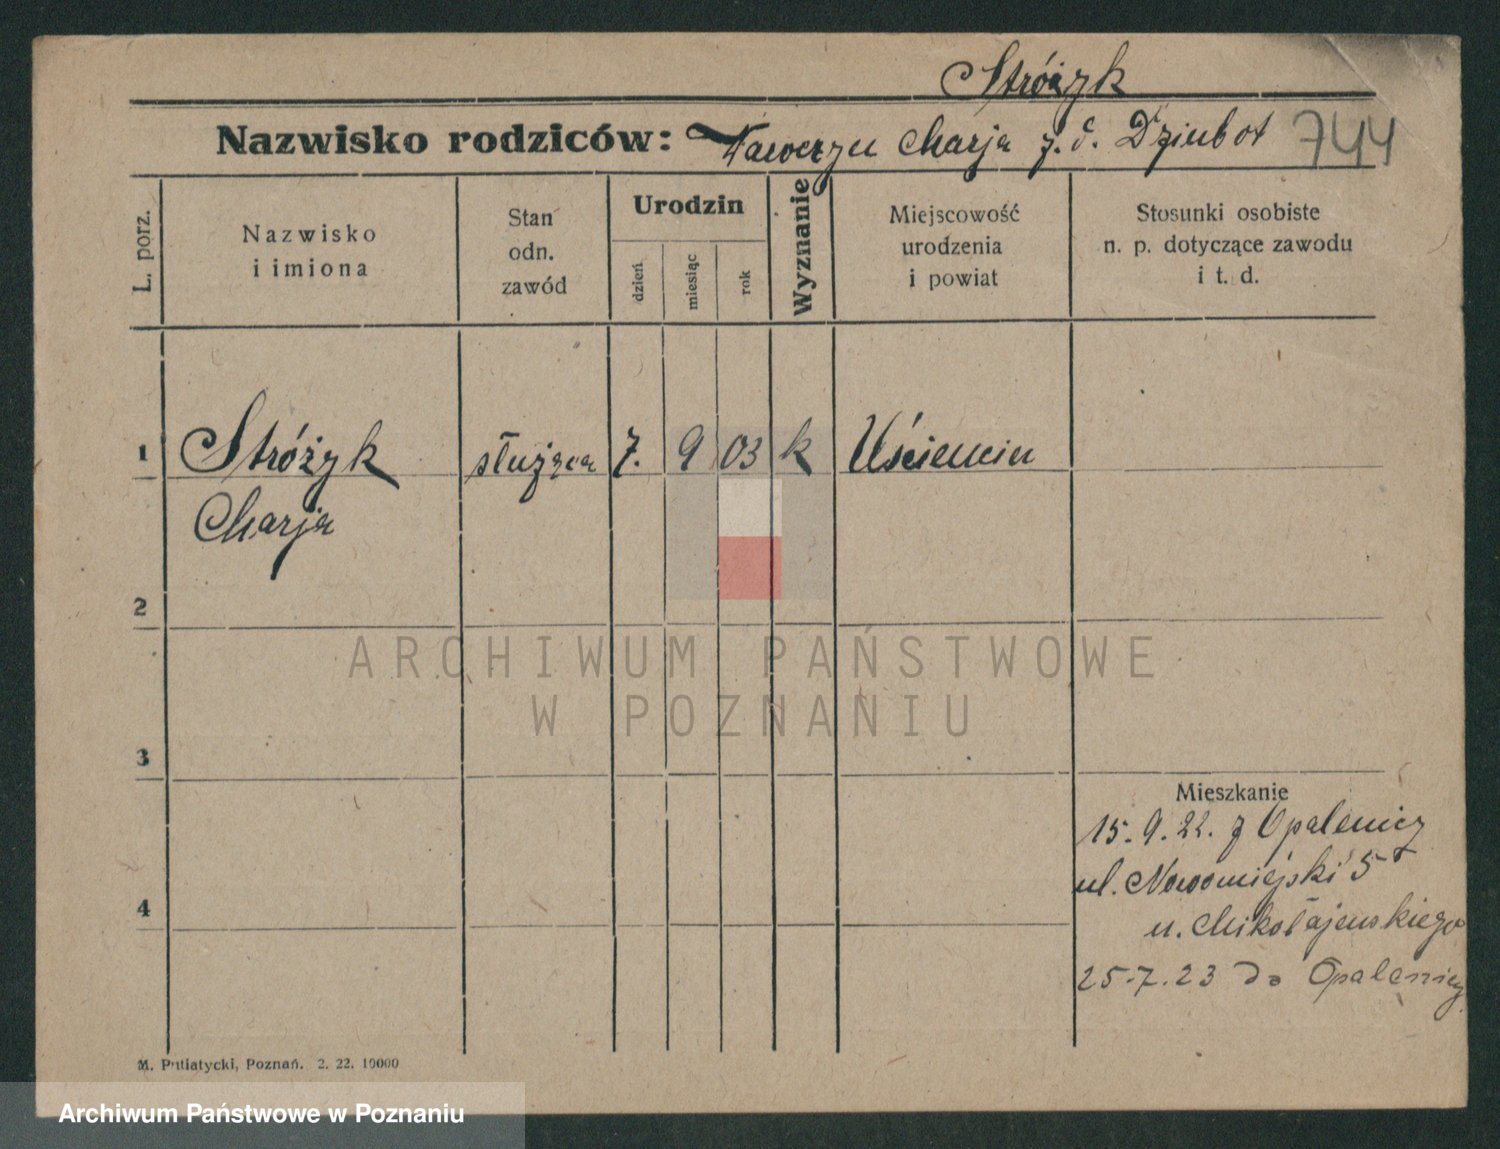 Stróżyk
Nazwisko rodziców: Wawrzyn Marja z. d. Dziubot 744
L. porz.
Nazwisko
i imiona
Stan
odn.
zawód
Urodzin
dzień
miesiąc
rok
Wyznanie
Miejscowość
urodzenia
i powiat
Stosunki osobiste
n. p. dotyczące zawodu
i t. d.
1 Stróżyk służąca 7. 9 03 k Uścięcice
Marja
2
ARCHIWUM PAŃSTWOWE
W POZNANIU
3
Mieszkanie
15. 9. 22. z Opalenicy
ul. Nowomiejski 5
4
u. Mikołajewskiego
25.7.23 do Opalenicy
M. Putiatycki, Poznań. 2. 22. 10000
Archiwum Państwowe w Poznaniu